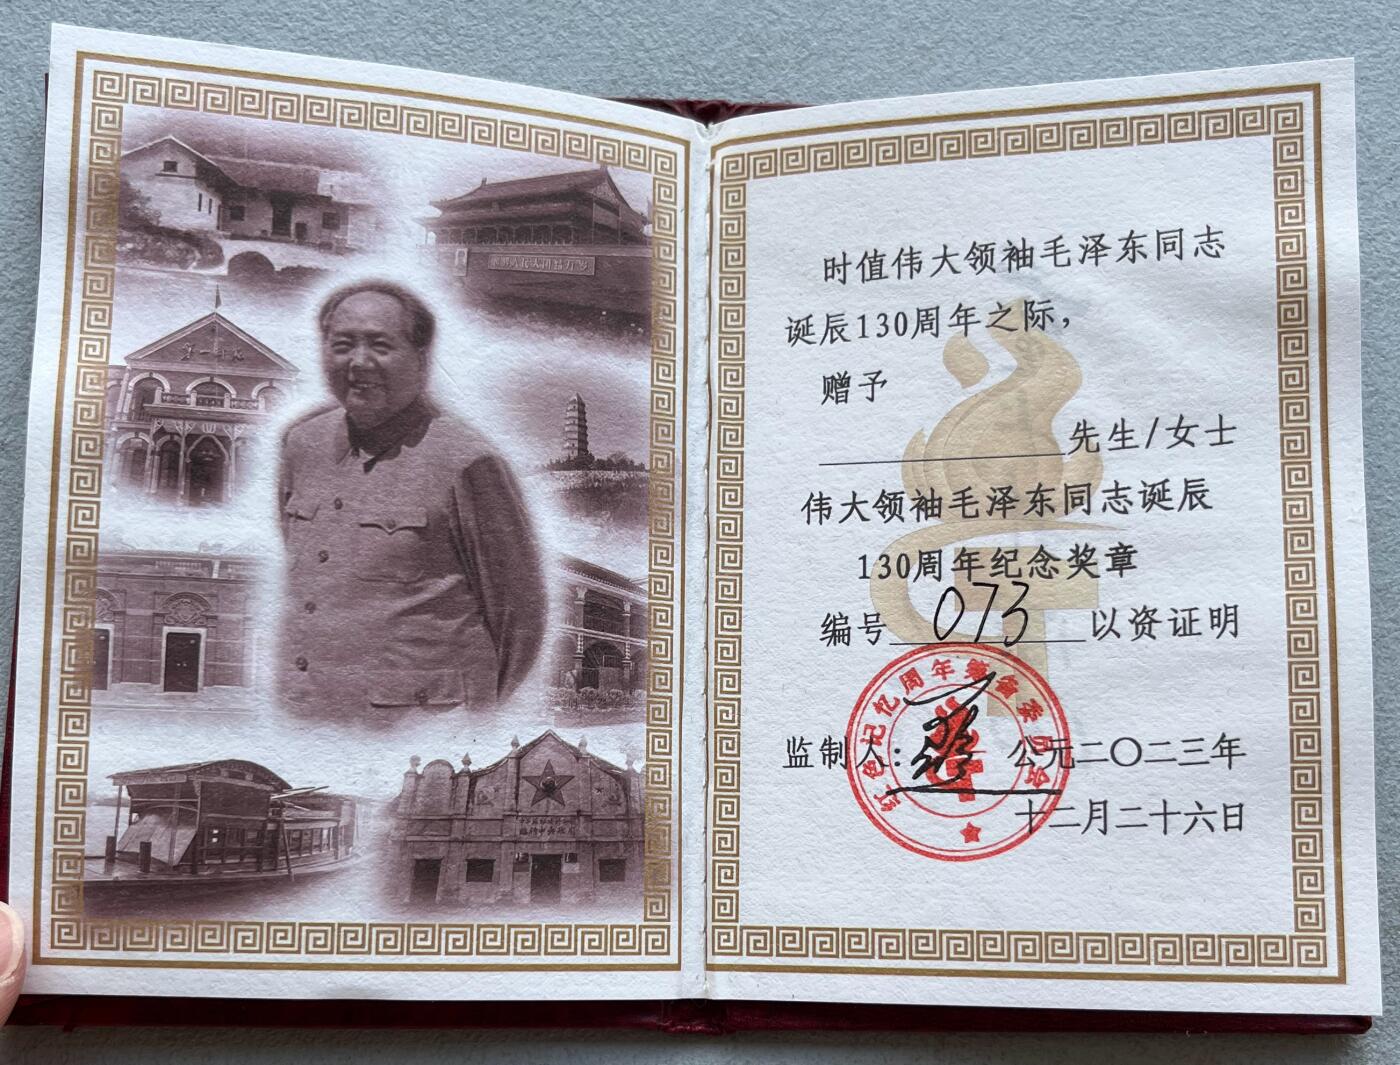 时值伟大领袖毛泽东同志
诞辰130周年之际，
赠予
先生/女士
伟大领袖毛泽东同志诞辰
130周年纪念奖章
编号 073 以资证明
监制人: 公元二〇二三年
十二月二十六日
红色记忆周年筹备委员会